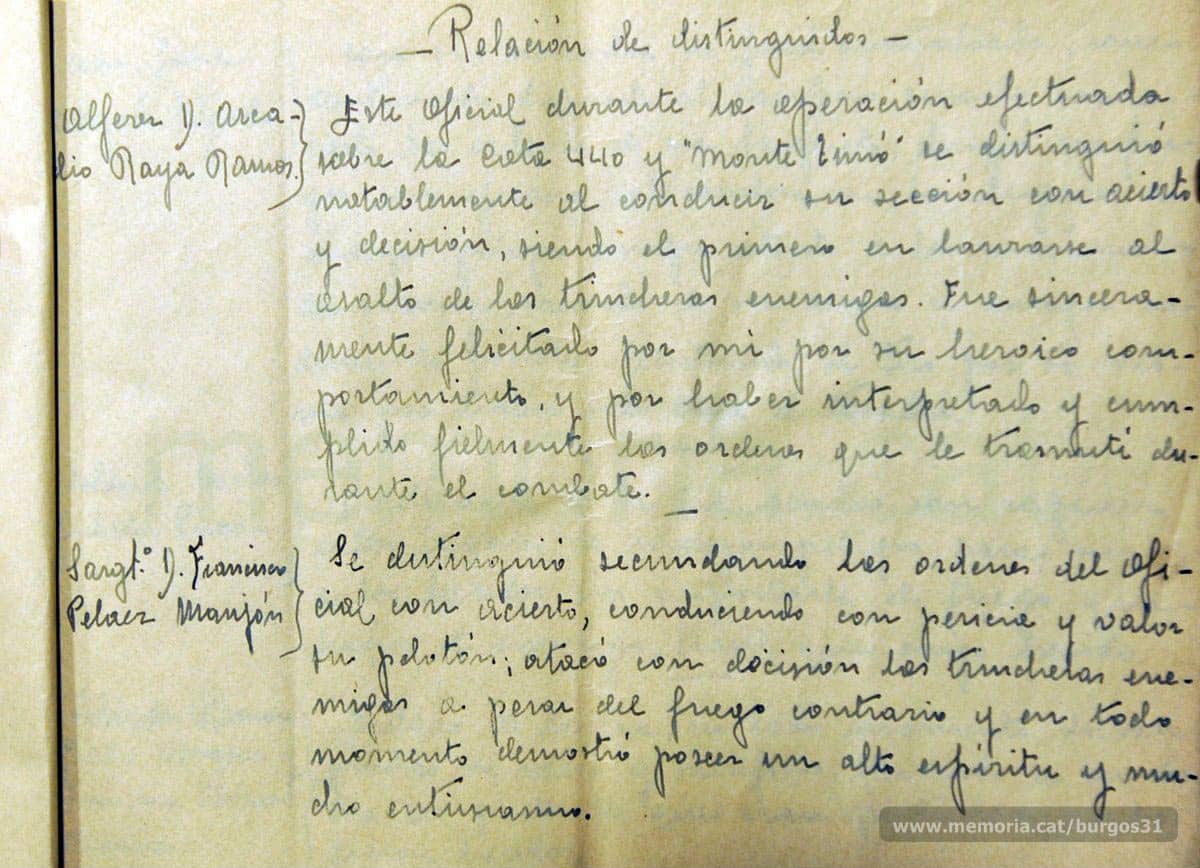 — Relación de distinguidos —
Alferez D. Arca-
dio Raya Ramos.
Este Oficial durante la operación efectuada
sobre la Cota 440 y "Monte" se distinguió
notablemente al conducir su sección con acierto
y decisión, siendo el primero en lanzarse al
asalto de las trincheras enemigas. Fue sincera-
mente felicitado por mi por su heroico com-
portamiento, y por haber interpretado y cum-
plido fielmente las ordenes que le trasmití du-
rante el combate.
—
Sargtº. D. Francisco
Pelaez Manjón
Se distinguió secundando las ordenes del Ofi-
cial con acierto, conduciendo con pericia y valor
su pelotón; atacó con decisión las trincheras ene-
migas a pesar del fuego contrario y en todo
momento demostró poseer un alto espíritu y mu-
cho entusiasmo.
www.memoria.cat/burgos31